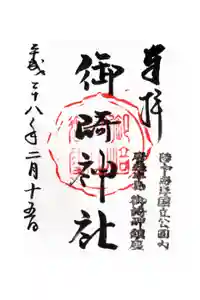 奉拝
陸中海岸国立公園内
唐桑半島 御崎岬鎮座
御崎神社
平成二十八年二月十五日